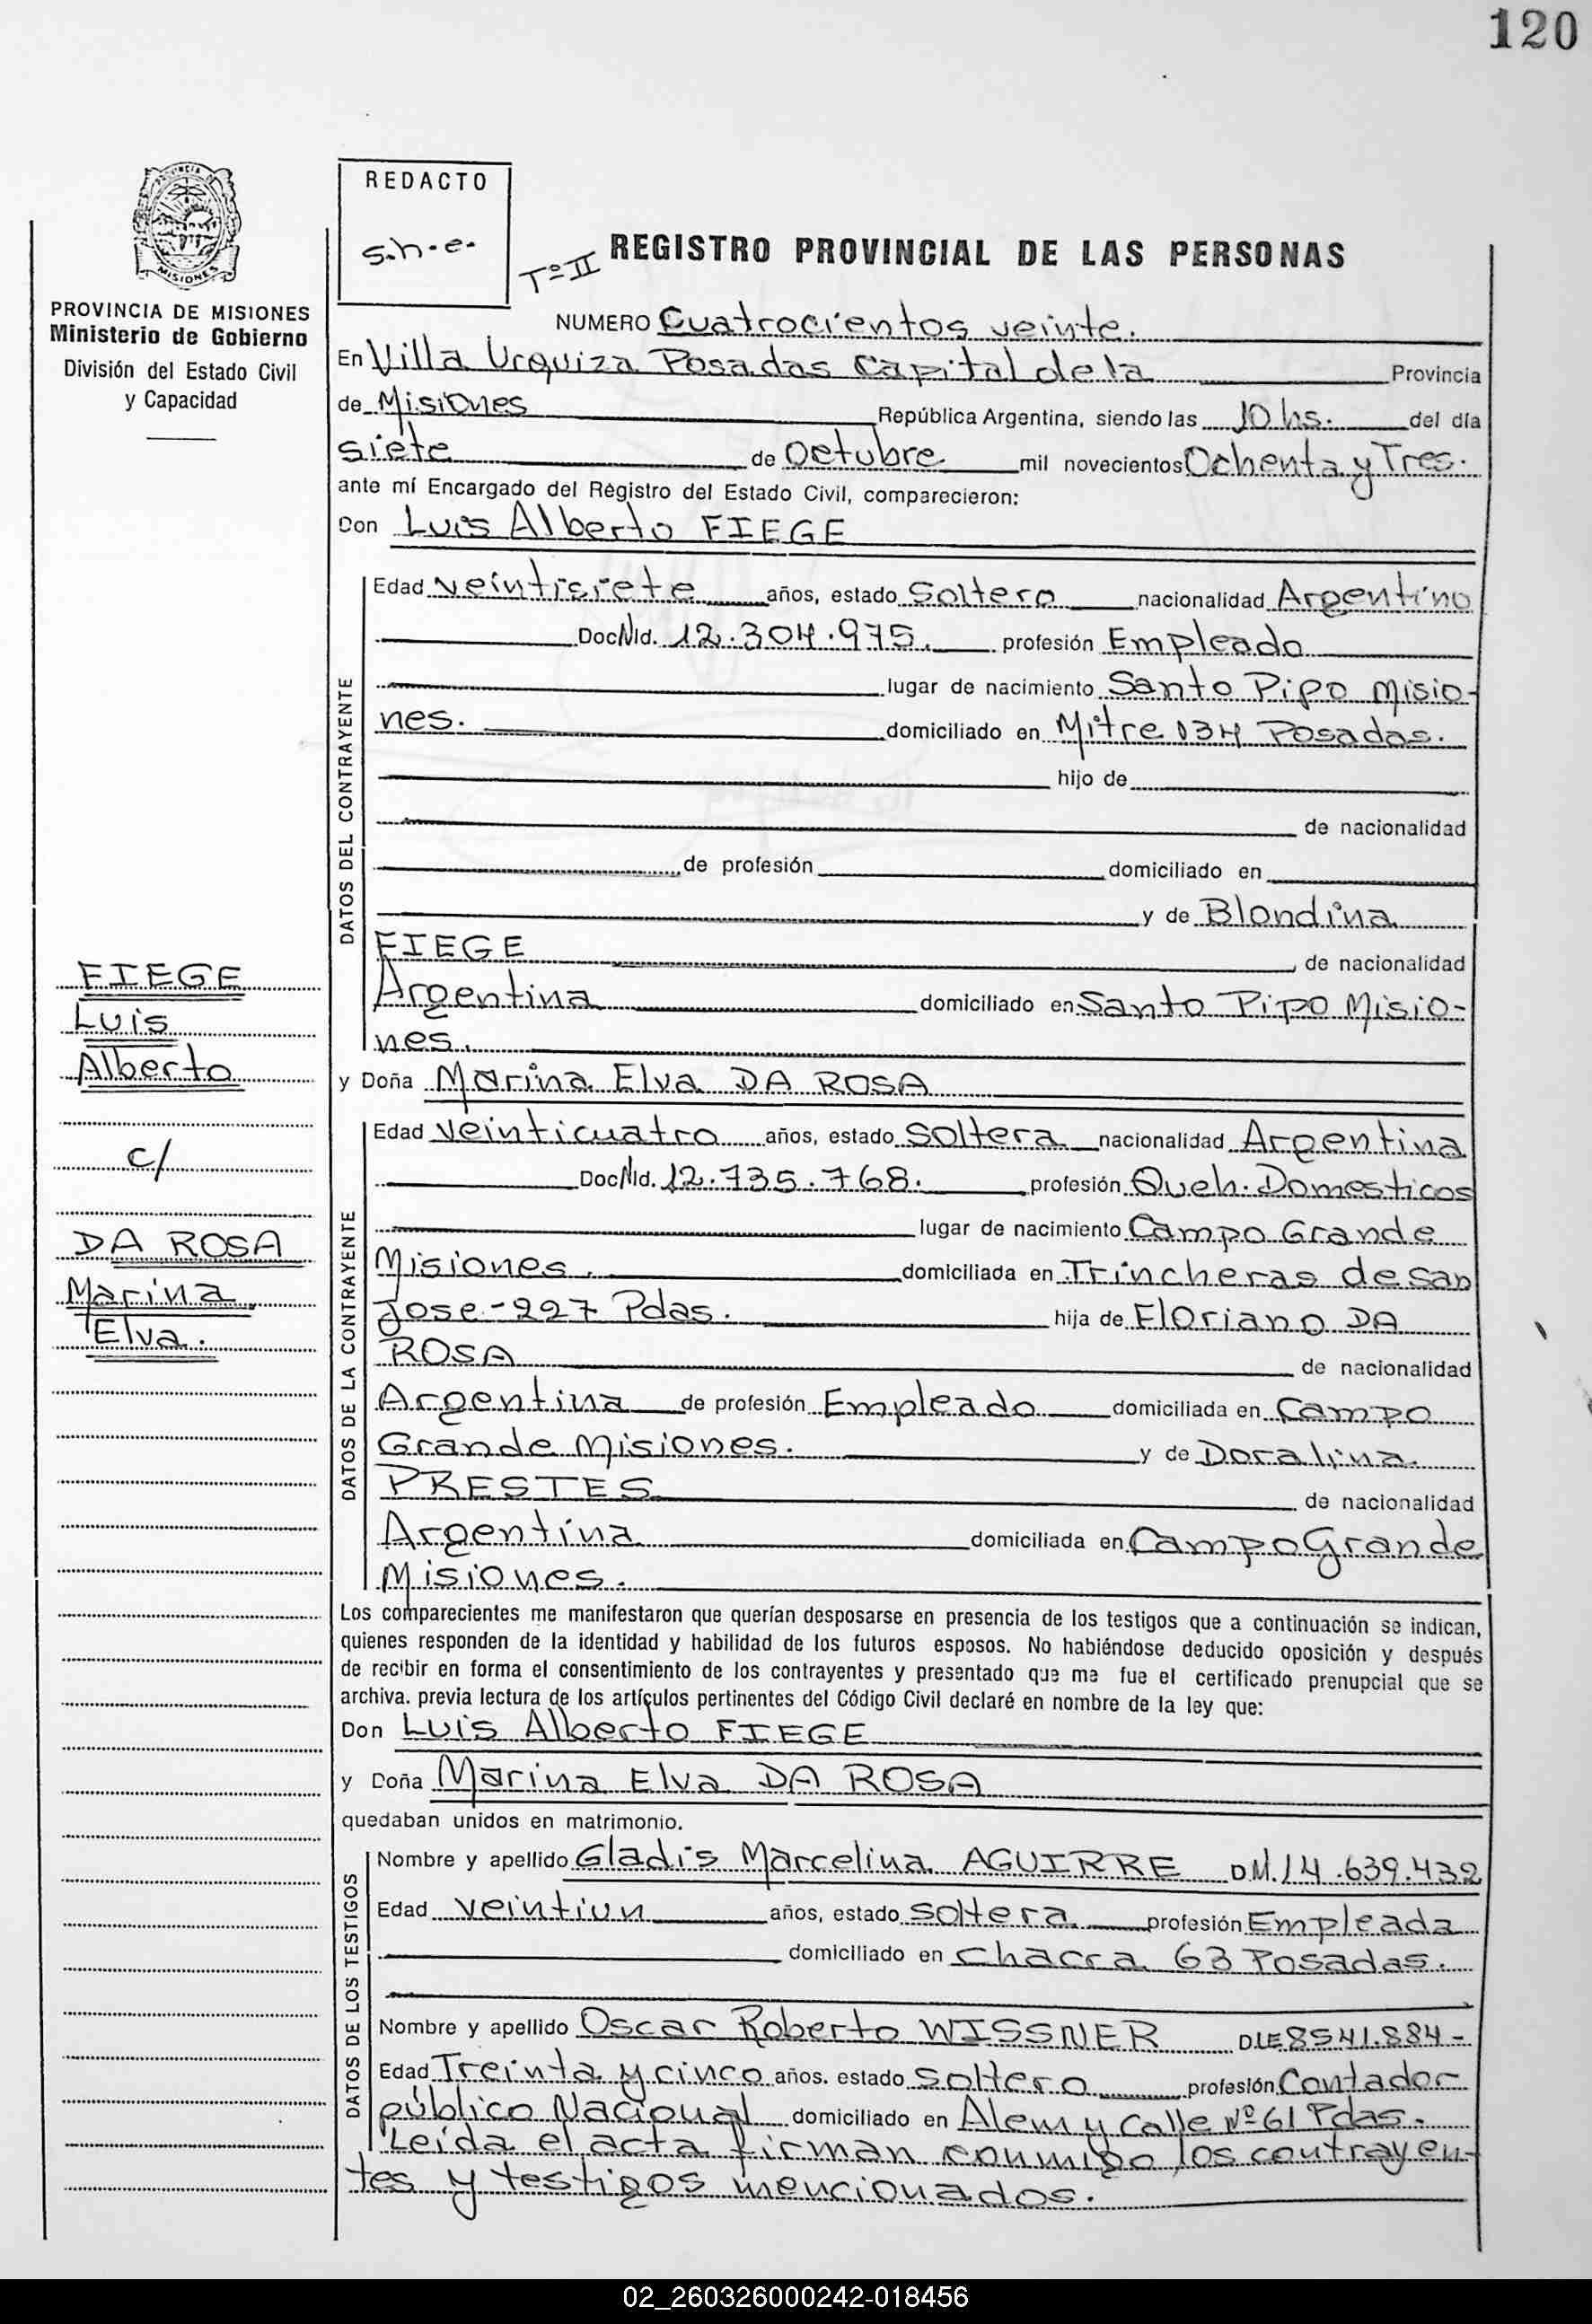 120
REDACTO
s.h.e.
Tº II
REGISTRO PROVINCIAL DE LAS PERSONAS
PROVINCIA DE MISIONES
Ministerio de Gobierno
División del Estado Civil
y Capacidad
NUMERO Cuatrocientos veinte.
En Villa Urquiza Posadas Capital de la Provincia
de Misiones República Argentina, siendo las 10 hs. del día
siete de Octubre mil novecientos Ochenta y Tres.
ante mí Encargado del Registro del Estado Civil, comparecieron:
Don Luis Alberto FIEGE
DATOS DEL CONTRAYENTE
Edad veintisiete años, estado Soltero nacionalidad Argentino
Doc.N.Id. 12.304.975. profesión Empleado
lugar de nacimiento Santo Pipo Misio-
nes. domiciliado en Mitre 034 Posadas.
hijo de
de nacionalidad
de profesión domiciliado en
y de Blondina
FIEGE , de nacionalidad
Argentina domiciliado en Santo Pipo Misio-
nes.
FIEGE
Luis
Alberto
c/
DA ROSA
Marina
Elva.
y Doña Marina Elva DA ROSA
DATOS DE LA CONTRAYENTE
Edad veinticuatro años, estado Soltera nacionalidad Argentina
Doc.N.Id. 12.735.768. profesión Queh. Domesticos
lugar de nacimiento Campo Grande
Misiones. domiciliada en Trincheras de San
Jose-227 Pdas. hija de Floriano DA
ROSA de nacionalidad
Argentina de profesión Empleado domiciliada en Campo
Grande Misiones. y de Doralina
PRESTES de nacionalidad
Argentina domiciliada en Campo Grande
Misiones.
Los comparecientes me manifestaron que querían desposarse en presencia de los testigos que a continuación se indican,
quienes responden de la identidad y habilidad de los futuros esposos. No habiéndose deducido oposición y después
de recibir en forma el consentimiento de los contrayentes y presentado que me fue el certificado prenupcial que se
archiva. previa lectura de los artículos pertinentes del Código Civil declaré en nombre de la ley que:
Don Luis Alberto FIEGE
y Doña Marina Elva DA ROSA
quedaban unidos en matrimonio.
DATOS DE LOS TESTIGOS
Nombre y apellido Gladis Marcelina AGUIRRE DM. 14.639.432
Edad veintiun años, estado soltera profesión Empleada
domiciliado en chacra 63 Posadas.
Nombre y apellido Oscar Roberto WISSNER D.LE 8541.884-
Edad Treinta y cinco años. estado soltero profesión Contador
público Nacional domiciliado en Alem y Calle Nº 61 Pdas.
Leída el acta firman conmigo los contrayen-
tes y testigos mencionados.
02_260326000242-018456